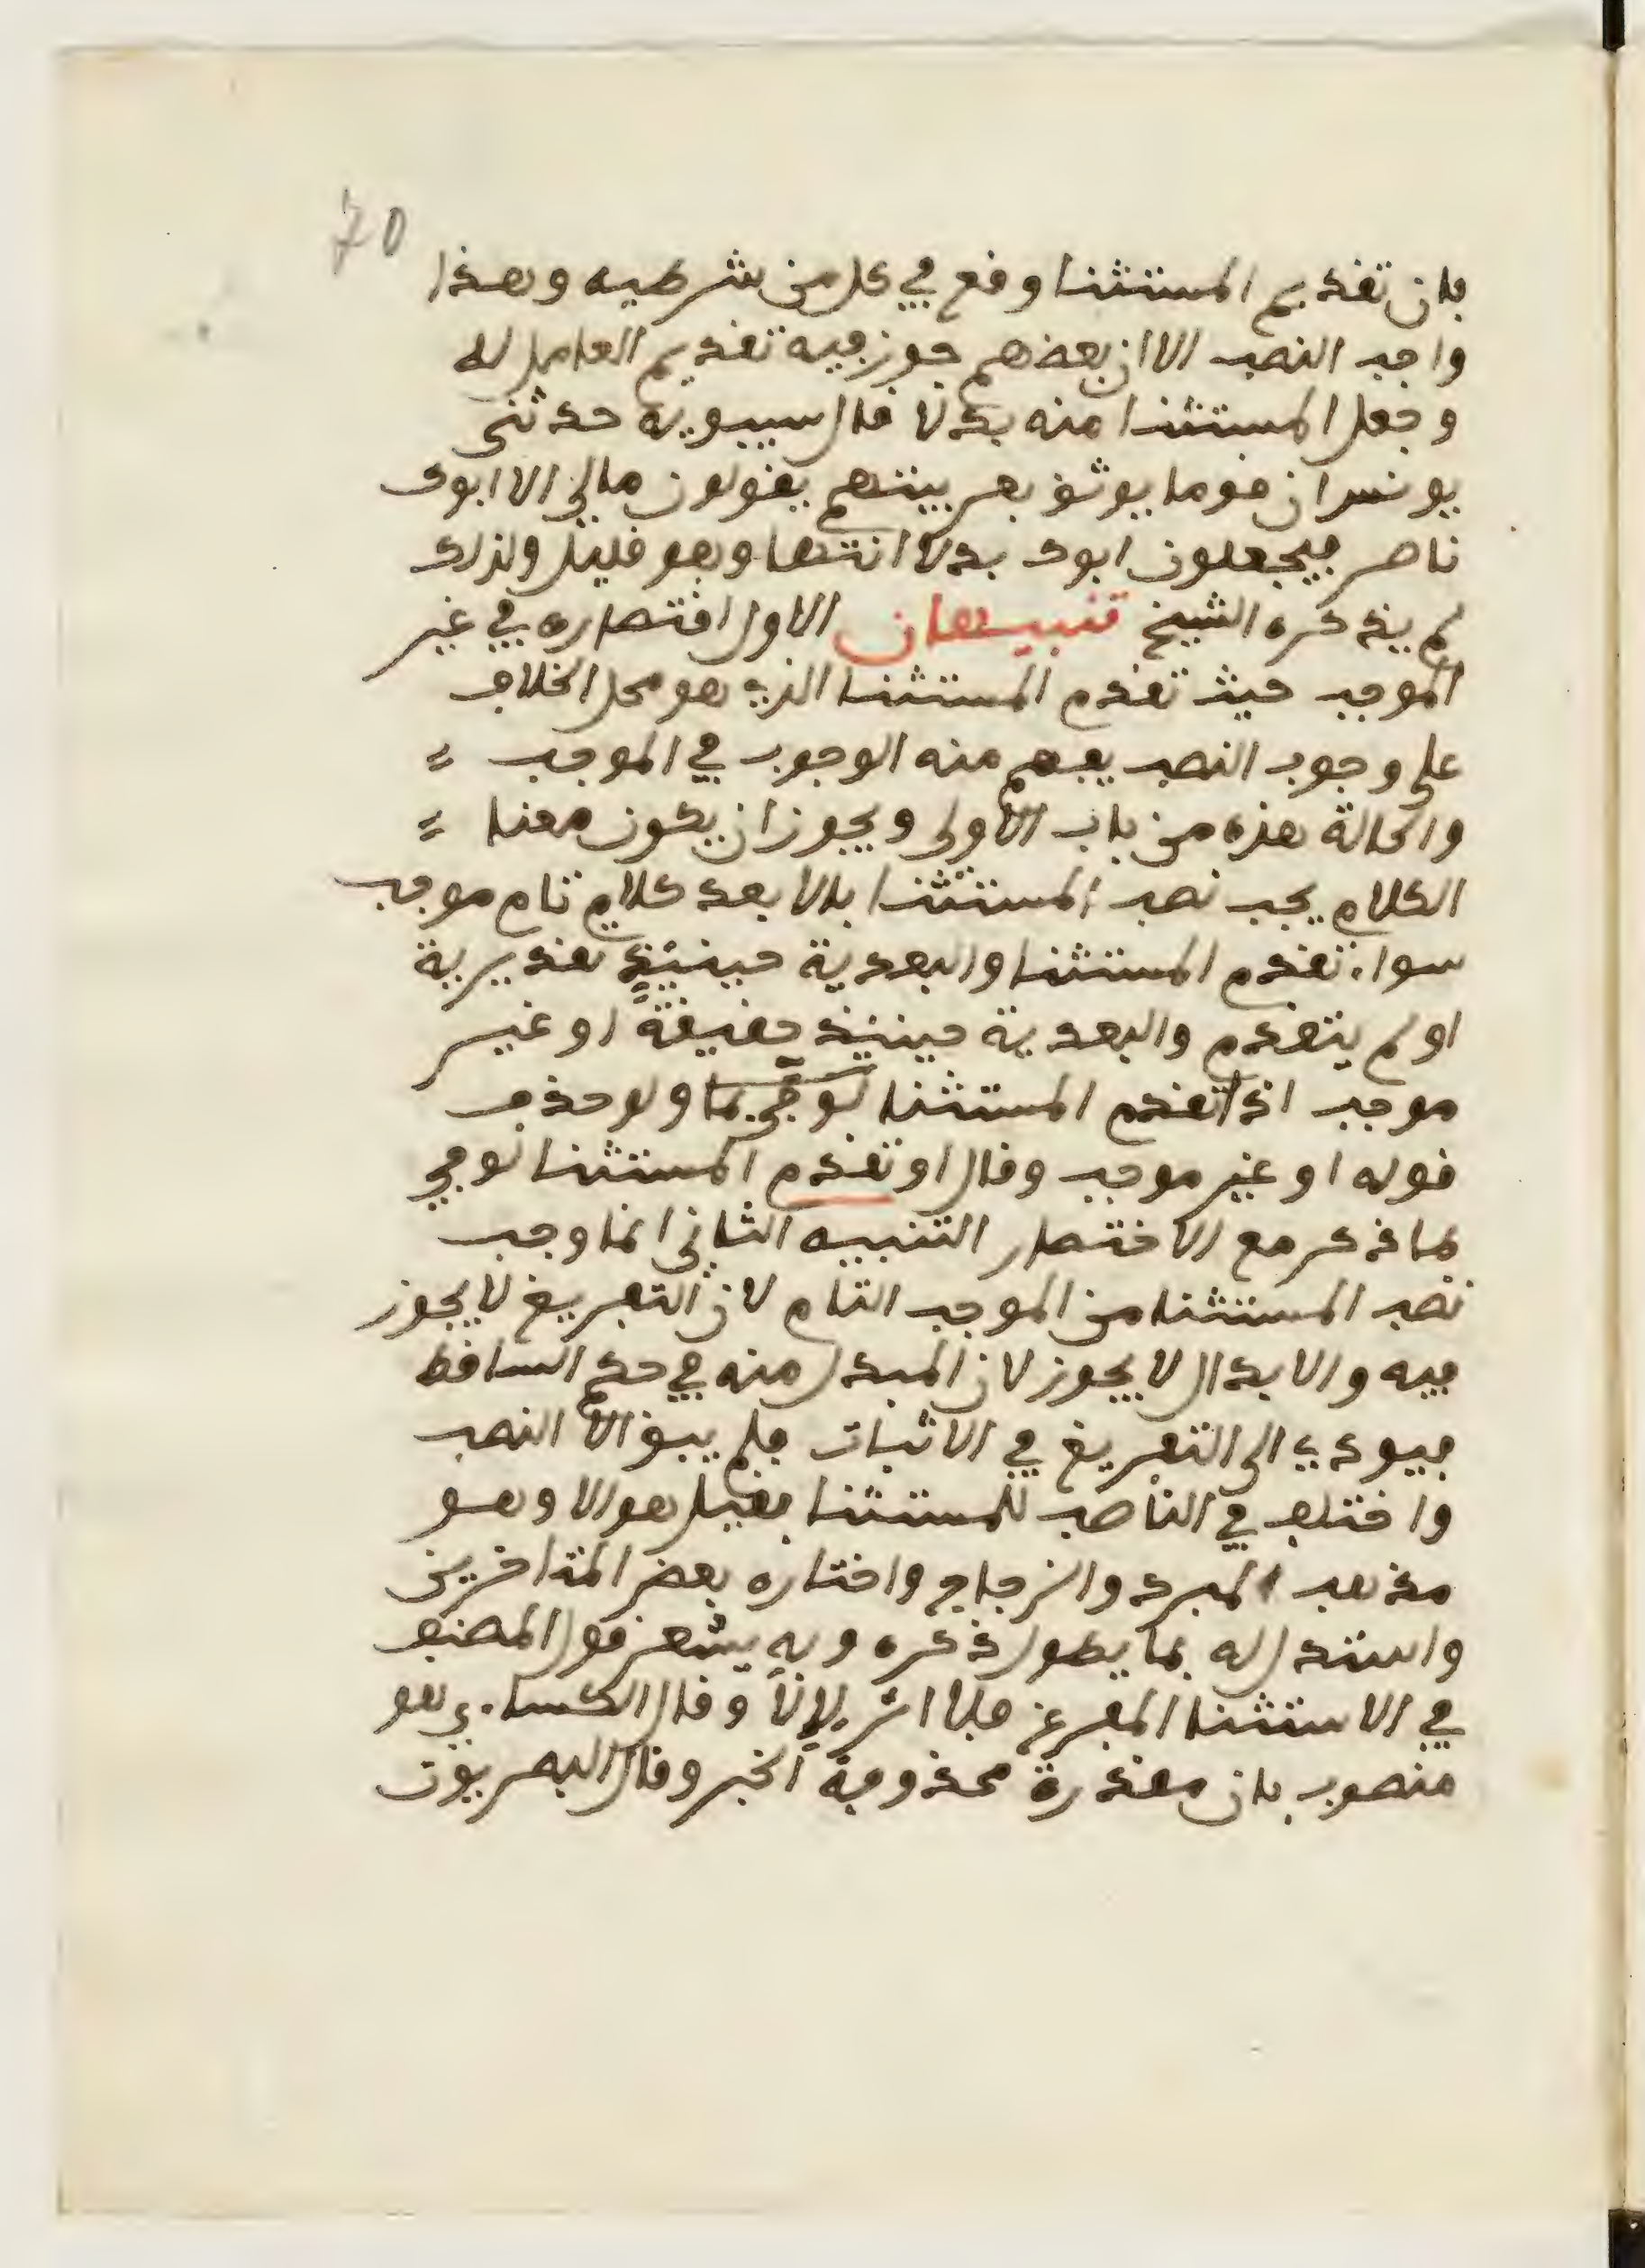 70
فان تقديم المستثنا وقع في كل من شرطيه وهذا
واجب النصب الا ان بعضهم جوز فيه تقديم العامل له
وجعل المستثنا منه بدلا قال سيبويه حدثني
يونس ان قوما يوثق بعربيتهم يقولون مالي الا ابوك
ناصر فيجعلون ابوك بدلا انتها وهو قليل ولذلك
لم يذكره الشيخ تنبيهان الاول اقتصاره في غير
الموجب حيث تقدم المستثنا الذي هو محل الخلاف
على وجوب النصب يفهم منه الوجوب في الموجب
والحالة هذه من باب الاولى ويجوز ان يكون معنا
الكلام يجب نصب المستثنا بالا بعد كلام تام موجب
سواء تقدم المستثنا والبعدية حينئذ تقديرية
او لم يتقدم والبعدية حينئذ حقيقة او غير
موجب اذا تقدم المستثنا لوفى بما ولو حذف
قوله او غير موجب وقال او تقدم المستثنا لوفي
بما ذكر مع الاختصار التنبيه الثاني انما وجب
نصب المستثنا من الموجب التام لان التفريغ لا يجوز
فيه والابدال لا يجوز لان المبدل منه في حكم الساقط
فيودي الى التفريغ في الاثبات فلم يبق الا النصب
واختلف في الناصب للمستثنا فقيل هو الا وهو
مذهب المبرد والزجاج واختاره بعض المتاخرين
واستدل له بما يطول ذكره وبه يشعر قول المصنف
في الاستثنا المفرغ فلا اثر لإلا وقال الكساءي هو
منصوب بان مقدرة محذوفة الخبر وقال البصريون